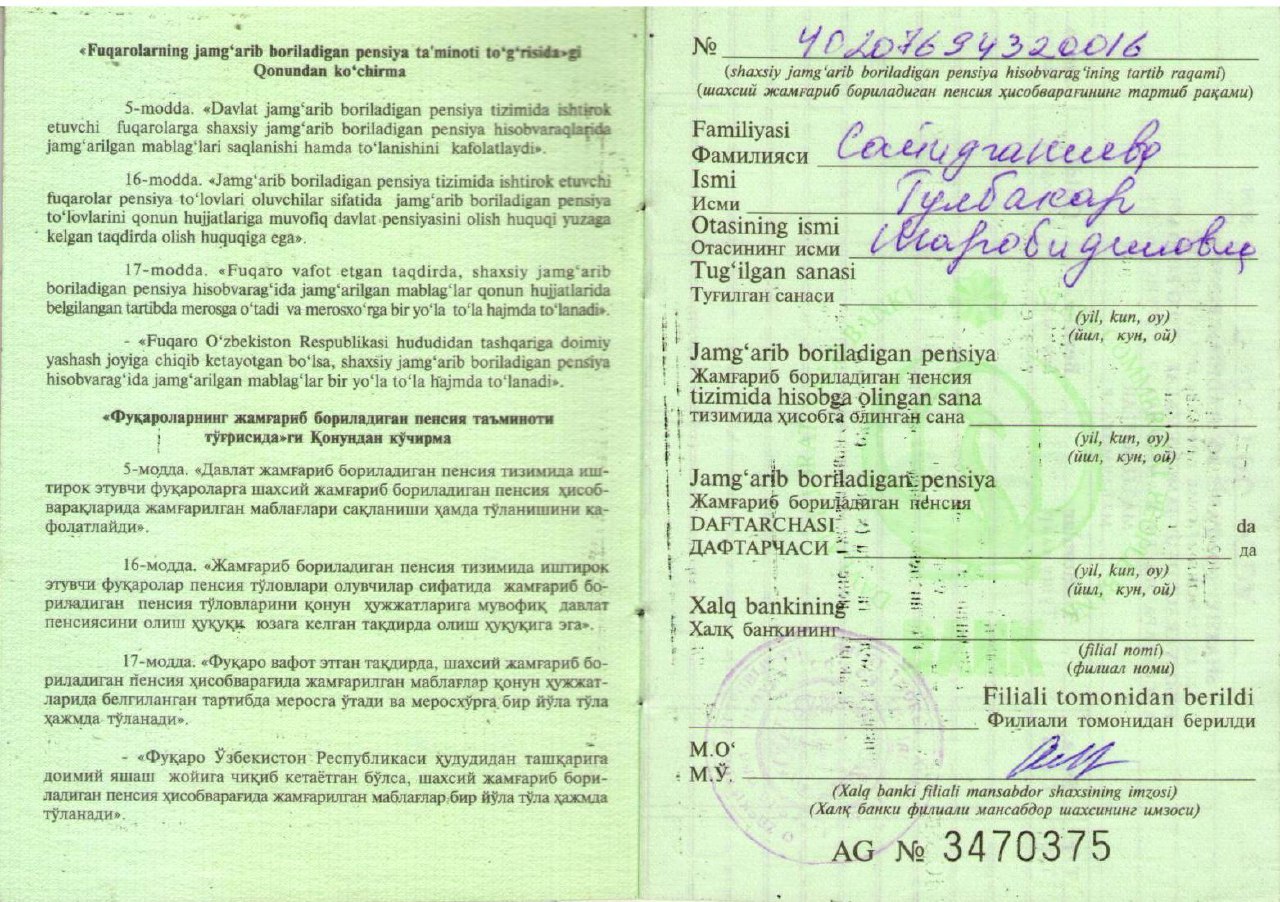 «Fuqarolarning jamg‘arib boriladigan pensiya ta'minoti to‘g‘risida»gi
Qonundan ko‘chirma
5-modda. «Davlat jamg‘arib boriladigan pensiya tizimida ishtirok
etuvchi fuqarolarga shaxsiy jamg‘arib boriladigan pensiya hisobvaraqlarida
jamg‘arilgan mablag‘lari saqlanishi hamda to‘lanishini kafolatlaydi».
16-modda. «Jamg‘arib boriladigan pensiya tizimida ishtirok etuvchi
fuqarolar pensiya to‘lovlari oluvchilar sifatida jamg‘arib boriladigan pensiya
to‘lovlarini qonun hujjatlariga muvofiq davlat pensiyasini olish huquqi yuzaga
kelgan taqdirda olish huquqiga ega».
17-modda. «Fuqaro vafot etgan taqdirda, shaxsiy jamg‘arib
boriladigan pensiya hisobvarag‘ida jamg‘arilgan mablag‘lar qonun hujjatlarida
belgilangan tartibda merosga o‘tadi va merosxo‘rga bir yo‘la to‘la hajmda to‘lanadi».
- «Fuqaro O‘zbekiston Respublikasi hududidan tashqariga doimiy
yashash joyiga chiqib ketayotgan bo‘lsa, shaxsiy jamg‘arib boriladigan pensiya
hisobvarag‘ida jamg‘arilgan mablag‘lar bir yo‘la to‘la hajmda to‘lanadi».
«Фуқароларнинг жамғариб бориладиган пенсия таъминоти
тўғрисида»ги Қонундан кўчирма
5-модда. «Давлат жамғариб бориладиган пенсия тизимида иш-
тирок этувчи фуқароларга шахсий жамғариб бориладиган пенсия ҳисоб-
варақларида жамғарилган маблағлари сақланиши ҳамда тўланишини ка-
фолатлайди».
16-модда. «Жамғариб бориладиган пенсия тизимида иштирок
этувчи фуқаролар пенсия тўловлари олувчилар сифатида жамғариб бо-
риладиган пенсия тўловларини қонун ҳужжатларига мувофиқ давлат
пенсиясини олиш ҳуқуқи юзага келган тақдирда олиш ҳуқуқига эга».
17-модда. «Фуқаро вафот этган тақдирда, шахсий жамғариб бо-
риладиган пенсия ҳисобварағида жамғарилган маблағлар қонун ҳужжат-
ларида белгиланган тартибда меросга ўтади ва меросхўрга бир йўла тўла
ҳажмда тўланади».
- «Фуқаро Ўзбекистон Республикаси ҳудудидан ташқарига
доимий яшаш жойига чиқиб кетаётган бўлса, шахсий жамғариб бори-
ладиган пенсия ҳисобварағида жамғарилган маблағлар бир йўла тўла ҳажмда
тўланади».
№ 40207694320016
(shaxsiy jamg‘arib boriladigan pensiya hisobvarag‘ining tartib raqami)
(шахсий жамғариб бориладиган пенсия ҳисобварағининг тартиб рақами)
Familiyasi
Фамилияси Сайидганиева
Ismi
Исми Гулбахар
Otasining ismi
Отасининг исми
Tug‘ilgan sanasi
Туғилган санаси
(yil, kun, oy)
(йил, кун, ой)
Jamg‘arib boriladigan pensiya
Жамғариб бориладиган пенсия
tizimida hisobga olingan sana
тизимида ҳисобга олинган сана
(yil, kun, oy)
(йил, кун, ой)
Jamg‘arib boriladigan pensiya
Жамғариб бориладиган пенсия
DAFTARCHASI da
ДАФТАРЧАСИ да
(yil, kun, oy)
(йил, кун, ой)
Xalq bankining
Халқ банкининг
(filial nomi)
(филиал номи)
Filiali tomonidan berildi
Филиали томонидан берилди
M.O‘
М.Ў.
(Xalq banki filiali mansabdor shaxsining imzosi)
(Халқ банки филиали мансабдор шахсининг имзоси)
AG № 3470375